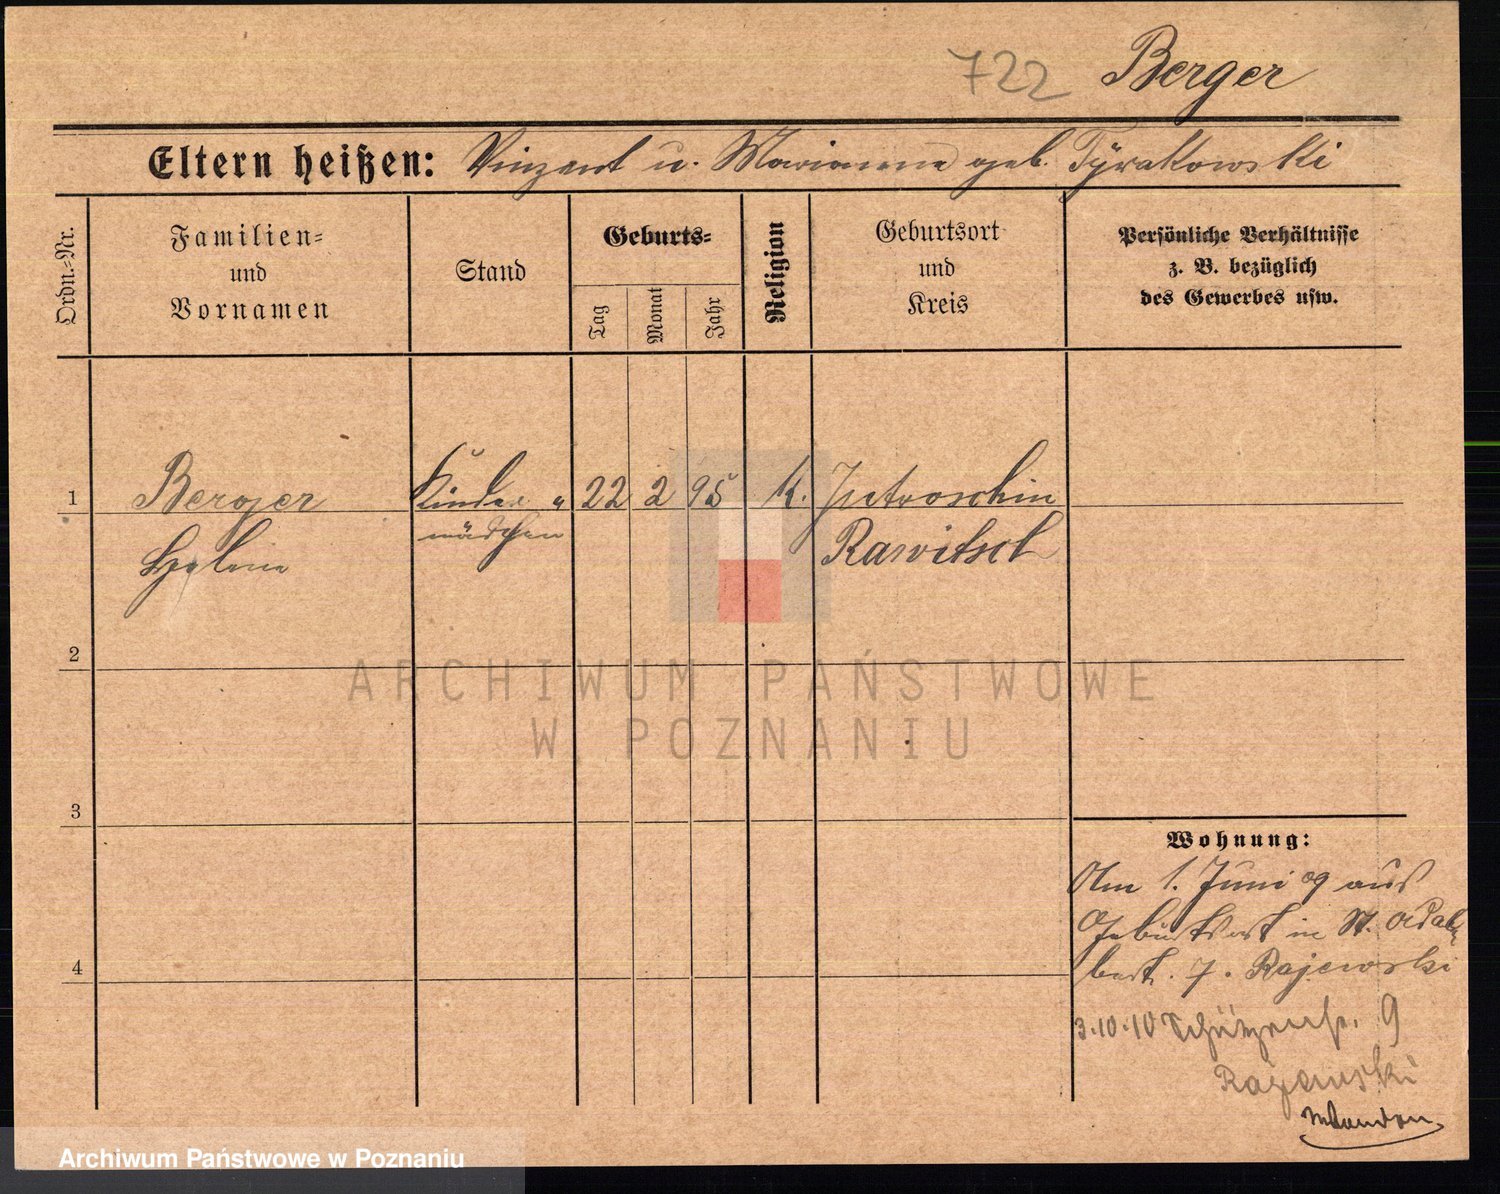 722 Berger
Eltern heißen: Vinzent u. Marianna geb. Tyrakowski
Ordn.-Nr.
Familien- und Vornamen
Stand
Geburts-
Tag
Monat
Jahr
Religion
Geburtsort und Kreis
Persönliche Verhältnisse
z. B. bezüglich
des Gewerbes usw.
1 Berger Kinder- 22 2 95 K. Jutroschin
Helene mädchen Rawitsch
2
ARCHIWUM PAŃSTWOWE
W POZNANIU
3
Wohnung:
Am 1. Juni 09 aus
Geburtsort in St. Adal-
bert. 7. Rajewski
4
3.10.10 Schützenstr. 9
Rajewski
Archiwum Państwowe w Poznaniu